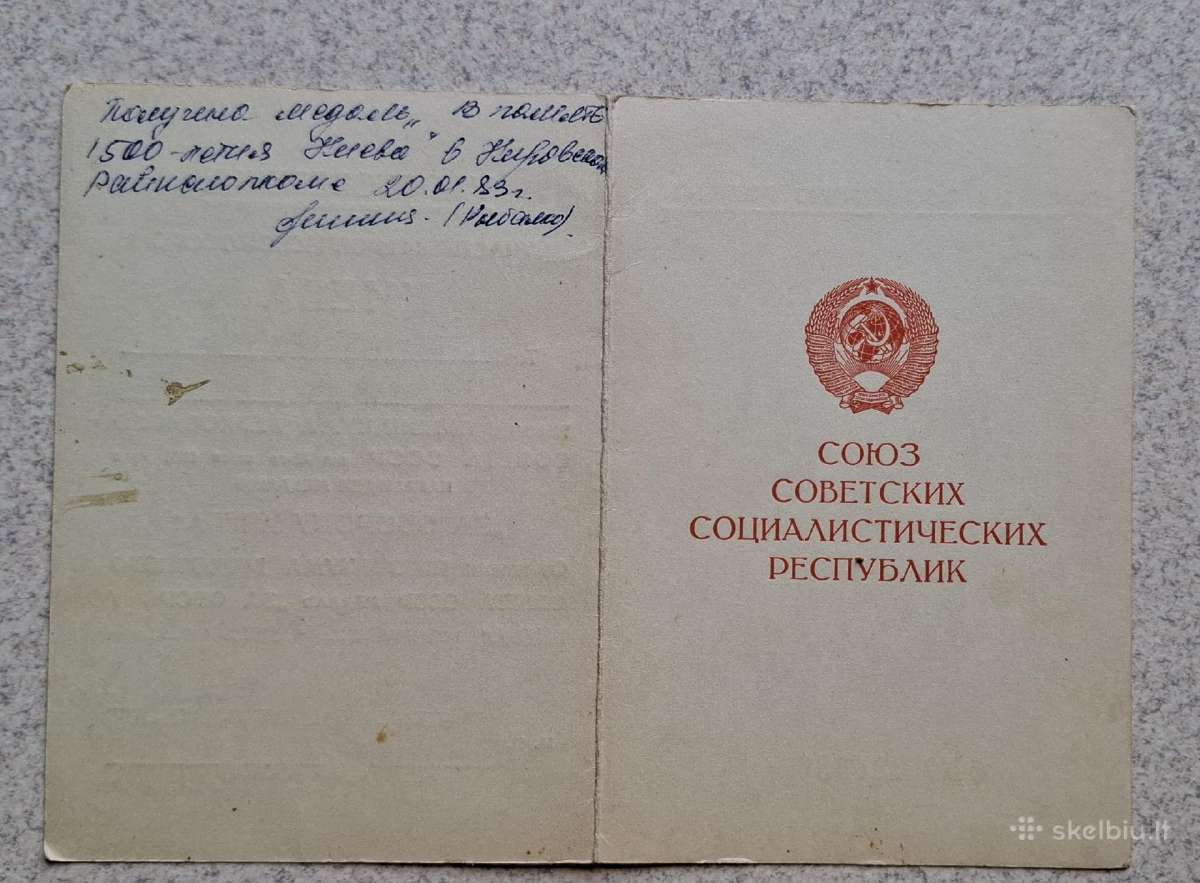 Получена медаль „В память
1500-летия Киева" в Кировском
Райисполкоме 20.01.83г.
(Рыбалко)
СОЮЗ
СОВЕТСКИХ
СОЦИАЛИСТИЧЕСКИХ
РЕСПУБЛИК
skelbiu.lt